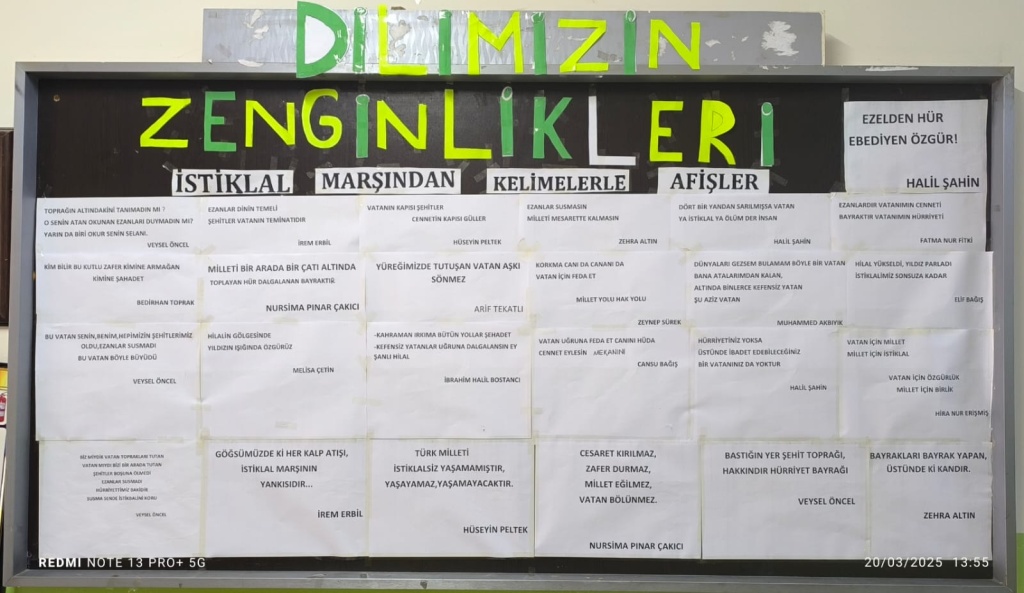 DİLİMİZİN
ZENGİNLİKLERİ
İSTİKLAL MARŞINDAN KELİMELERLE AFİŞLER
EZELDEN HÜR
EBEDİYEN ÖZGÜR!
HALİL ŞAHİN
TOPRAĞIN ALTINDAKİNİ TANIMADIN MI ?
O SENİN ATAN OKUNAN EZANLARI DUYMADIN MI?
YARIN DA BİRİ OKUR SENİN SELANI.
VEYSEL ÖNCEL
EZANLAR DİNİN TEMELİ
ŞEHİTLER VATANIN TEMİNATIDIR
İREM ERBİL
VATANIN KAPISI ŞEHİTLER
CENNETİN KAPISI GÜLLER
HÜSEYİN PELTEK
EZANLAR SUSMASIN
MİLLETİ MESARETTE KALMASIN
ZEHRA ALTIN
DÖRT BİR YANDAN SARILMIŞSA VATAN
YA İSTİKLAL YA ÖLÜM DER İNSAN
HALİL ŞAHİN
EZANLARDIR VATANIMIN CENNETİ
BAYRAKTIR VATANIMIN HÜRRİYETİ
FATMA NUR FİTKİ
KİM BİLİR BU KUTLU ZAFER KİMİNE ARMAĞAN
KİMİNE ŞAHADET.
BEDİRHAN TOPRAK
MİLLETİ BİR ARADA BİR ÇATI ALTINDA
TOPLAYAN HÜR DALGALANAN BAYRAKTIR.
NURSİMA PINAR ÇAKICI
YÜREĞİMİZDE TUTUŞAN VATAN AŞKI
SÖNMEZ
ARİF TEKATLI
KORKMA CANI DA CANANI DA
VATAN İÇİN FEDA ET
MİLLET YOLU HAK YOLU
ZEYNEP SÜREK
DÜNYALARI GEZSEM BULAMAM BÖYLE BİR VATAN
BANA ATALARIMDAN KALAN,
ALTINDA BİNLERCE KEFENSİZ YATAN
ŞU AZİZ VATAN
MUHAMMED AKBIYIK
HİLAL YÜKSELDİ, YILDIZ PARLADI
İSTİKLALİMİZ SONSUZA KADAR
ELİF BAĞIŞ
BU VATAN SENİN,BENİM,HEPİMİZİN ŞEHİTLERİMİZ
OLDU,EZANLAR SUSMADI
BU VATAN BÖYLE BÜYÜDÜ
VEYSEL ÖNCEL
HİLALİN GÖLGESİNDE
YILDIZIN IŞIĞINDA ÖZGÜRÜZ
MELİSA ÇETİN
-KAHRAMAN IRKIMA BÜTÜN YOLLAR ŞEHADET
-KEFENSİZ YATANLAR UĞRUNA DALGALANSIN EY
ŞANLI HİLAL
İBRAHİM HALİL BOSTANCI
VATAN UĞRUNA FEDA ET CANINI HÜDA
CENNET EYLESİN MEKANINI
CANSU BAĞIŞ
HÜRRİYETİNİZ YOKSA
ÜSTÜNDE İBADET EDEBİLECEĞİNİZ
BİR VATANINIZ DA YOKTUR
HALİL ŞAHİN
VATAN İÇİN MİLLET
MİLLET İÇİN İSTİKLAL
VATAN İÇİN ÖZGÜRLÜK
MİLLET İÇİN BİRLİK
HİRA NUR ERİŞMİŞ
BİZ MİYDİK VATAN TOPRAKLARI TUTAN
VATAN MIYDI BİZİ BİR ARADA TUTAN
ŞEHİTLER BOŞUNA ÖLMEDİ
EZANLAR SUSMADI
HÜRRİYETİMİZ
SUSMA SENDE İSTİKLALİNİ KORU
VEYSEL ÖNCEL
GÖĞSÜMÜZDE Kİ HER KALP ATIŞI,
İSTİKLAL MARŞININ
YANKISIDIR...
İREM ERBİL
TÜRK MİLLETİ
İSTİKLALSİZ YAŞAMAMIŞTIR,
YAŞAYAMAZ,YAŞAMAYACAKTIR.
HÜSEYİN PELTEK
CESARET KIRILMAZ,
ZAFER DURMAZ,
MİLLET EĞİLMEZ,
VATAN BÖLÜNMEZ.
NURSİMA PINAR ÇAKICI
BASTIĞIN YER ŞEHİT TOPRAĞI,
HAKKINDIR HÜRRİYET BAYRAĞI
VEYSEL ÖNCEL
BAYRAKLARI BAYRAK YAPAN,
ÜSTÜNDE Kİ KANDIR.
ZEHRA ALTIN
REDMI NOTE 13 PRO+ 5G
20/03/2025 13:55